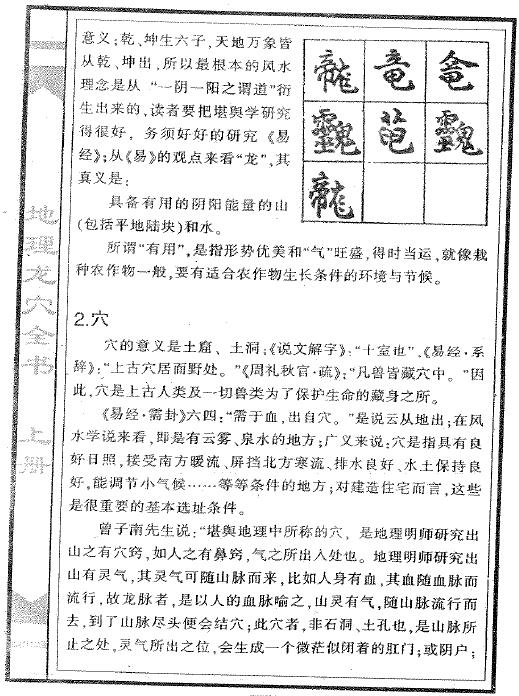 意义;乾、坤生六子,天地万象皆
从乾、坤出,所以最根本的风水
理念是从“一阴一阳之谓道”衍
生出来的,读者要把堪舆学研究
得很好,务须好好的研究《易
经》;从《易》的观点来看“龙”,其
真义是:
具备有用的阴阳能量的山
(包括平地陆块)和水。
所谓“有用”,是指形势优美和“气”旺盛,得时当运,就像栽
种农作物一般,要有适合农作物生长条件的环境与节候。
2.穴
穴的意义是土窟、土洞;《说文解字》:“十室也”、《易经·系
辞》:“上古穴居而野处。”《周礼秋官·疏》:“凡兽皆藏穴中。”因
此,穴是上古人类及一切兽类为了保护生命的藏身之所。
《易经·需卦》六四:“需于血,出自穴。”是说云从地出;在风
水学说来看,即是有云雾、泉水的地方;广义来说:穴是指具有良
好日照,接受南方暖流、屏挡北方寒流、排水良好、水土保持良
好,能调节小气候……等等条件的地方;对建造住宅而言,这些
是很重要的基本选址条件。
曾子南先生说:“堪舆地理中所称的穴,是地理明师研究出
山之有穴窍,如人之有鼻窍,气之所出入处也。地理明师研究出
山有灵气,其灵气可随山脉而来,比如人身有血,其血随血脉而
流行,故龙脉者,是以人的血脉喻之,山灵有气,随山脉流行而
去,到了山脉尽头便会结穴;此穴者,非石洞、土孔也,是山脉所
止之处,灵气所出之位,会生成一个微茫似闭着的肛门;或阴户;
地理龙穴全书
上册